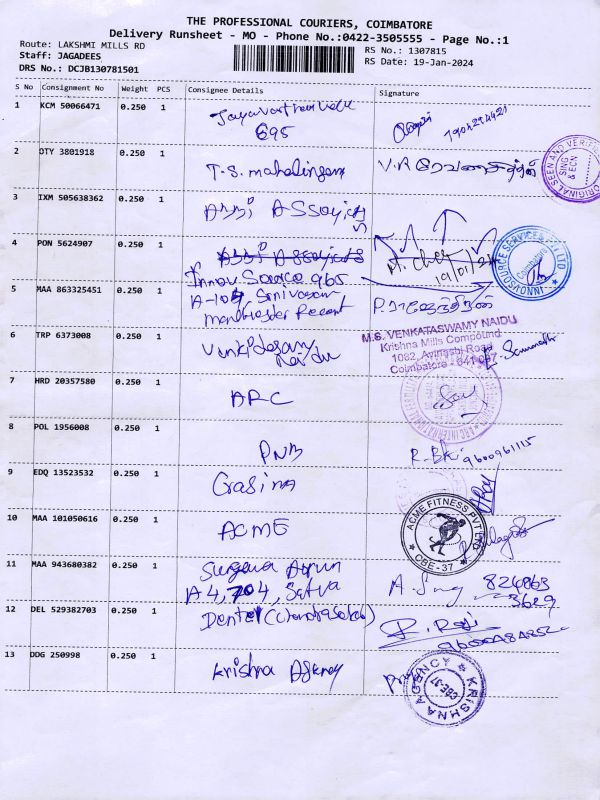 THE PROFESSIONAL COURIERS, COIMBATORE
Delivery Runsheet - MO - Phone No.:0422-3505555 - Page No.:1
Route: LAKSHMI MILLS RD
Staff: JAGADEES
DRS No.: DCJB130781501
RS No.: 1307815
RS Date: 19-Jan-2024
S No Consignment No Weight PCS Consignee Details Signature
1 KCM 50066471 0.250 1
695
2 DTY 3801918 0.250 1 T.S. mahalingam V.R
ORIGINAL SEEN AND VERIFIED
3 IXM 505638362 0.250 1
4 PON 5624907 0.250 1
Innov Source 965 19/01/24
INNOVSOURCE SERVICES PVT LTD
Coimbatore
5 MAA 863325451 0.250 1 A-104, Srinivasan
manchester Regent
6 TRP 6373008 0.250 1 Venkidasamy
Naidu
M.S. VENKATASWAMY NAIDU
Krishna Mills Compound
1082, Avinashi Road
Coimbatore - 641 037
7 HRD 20357580 0.250 1 ARC
8 POL 1956008 0.250 1 PNB 9600961115
9 EDQ 13523532 0.250 1 Grasima
10 MAA 101050616 0.250 1 ACME
ACME FITNESS PVT LTD
CBE-37
11 MAA 943680382 0.250 1
A4, 704, Satva
826863
3629
12 DEL 529382703 0.250 1 Dental (Chandrasekar) R. Raji
13 DDG 250998 0.250 1 Krishna Agency
KRISHNA AGENCY
CBE-37